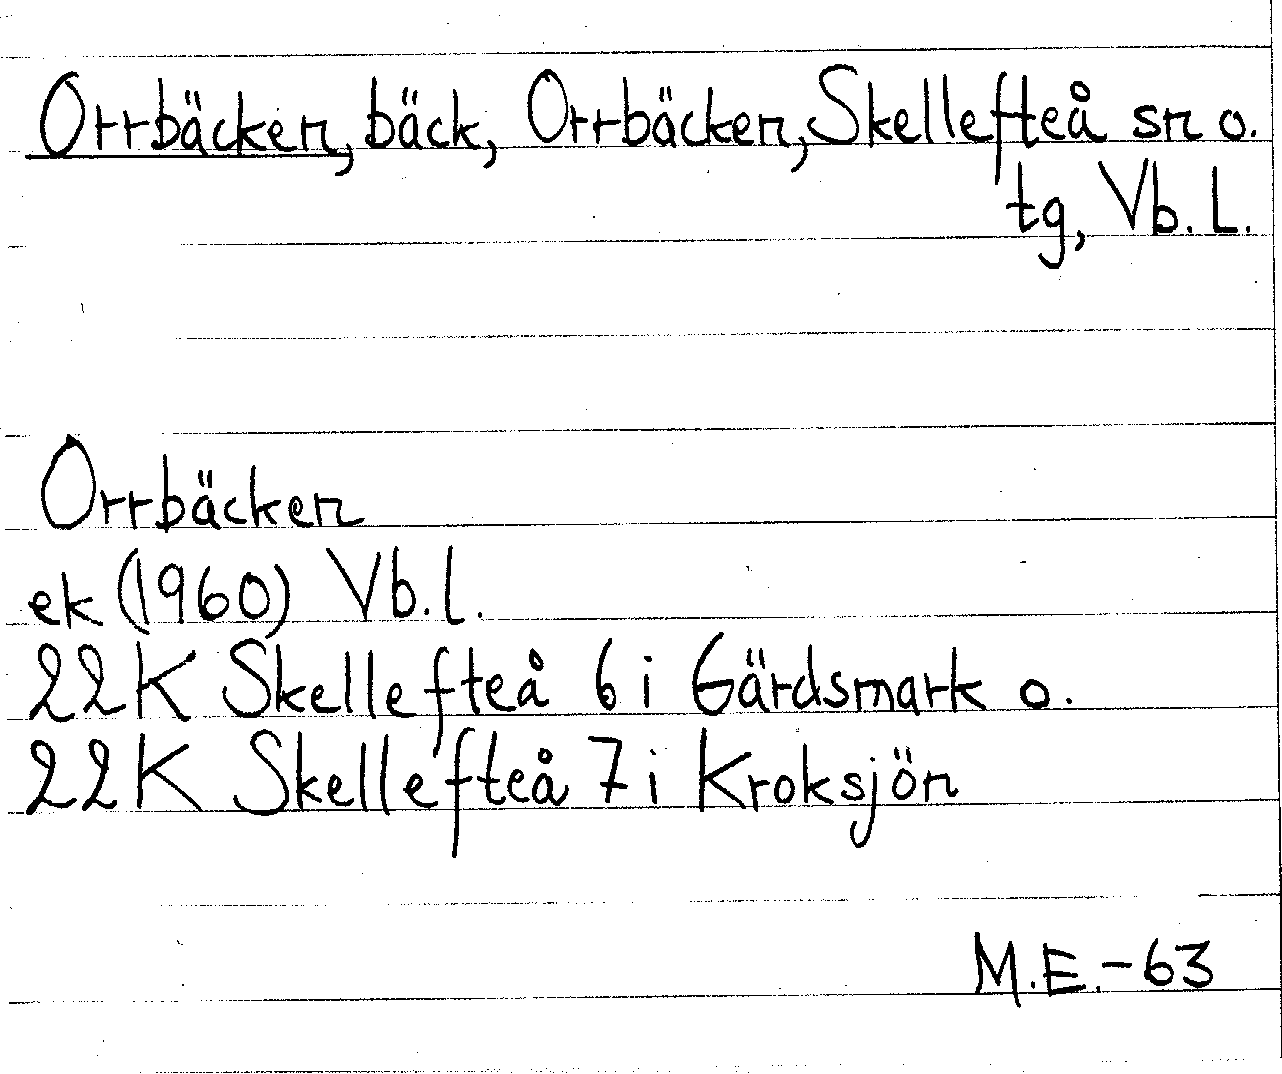 Orrbäcken, bäck, Orrbäcken, Skellefteå sn o.
tg, Vb. L.
Orrbäcken
ek (1960) Vb. l.
22K Skellefteå 6 i Gärdsmark o.
22K Skellefteå 7 i Kroksjön
M.E.-63